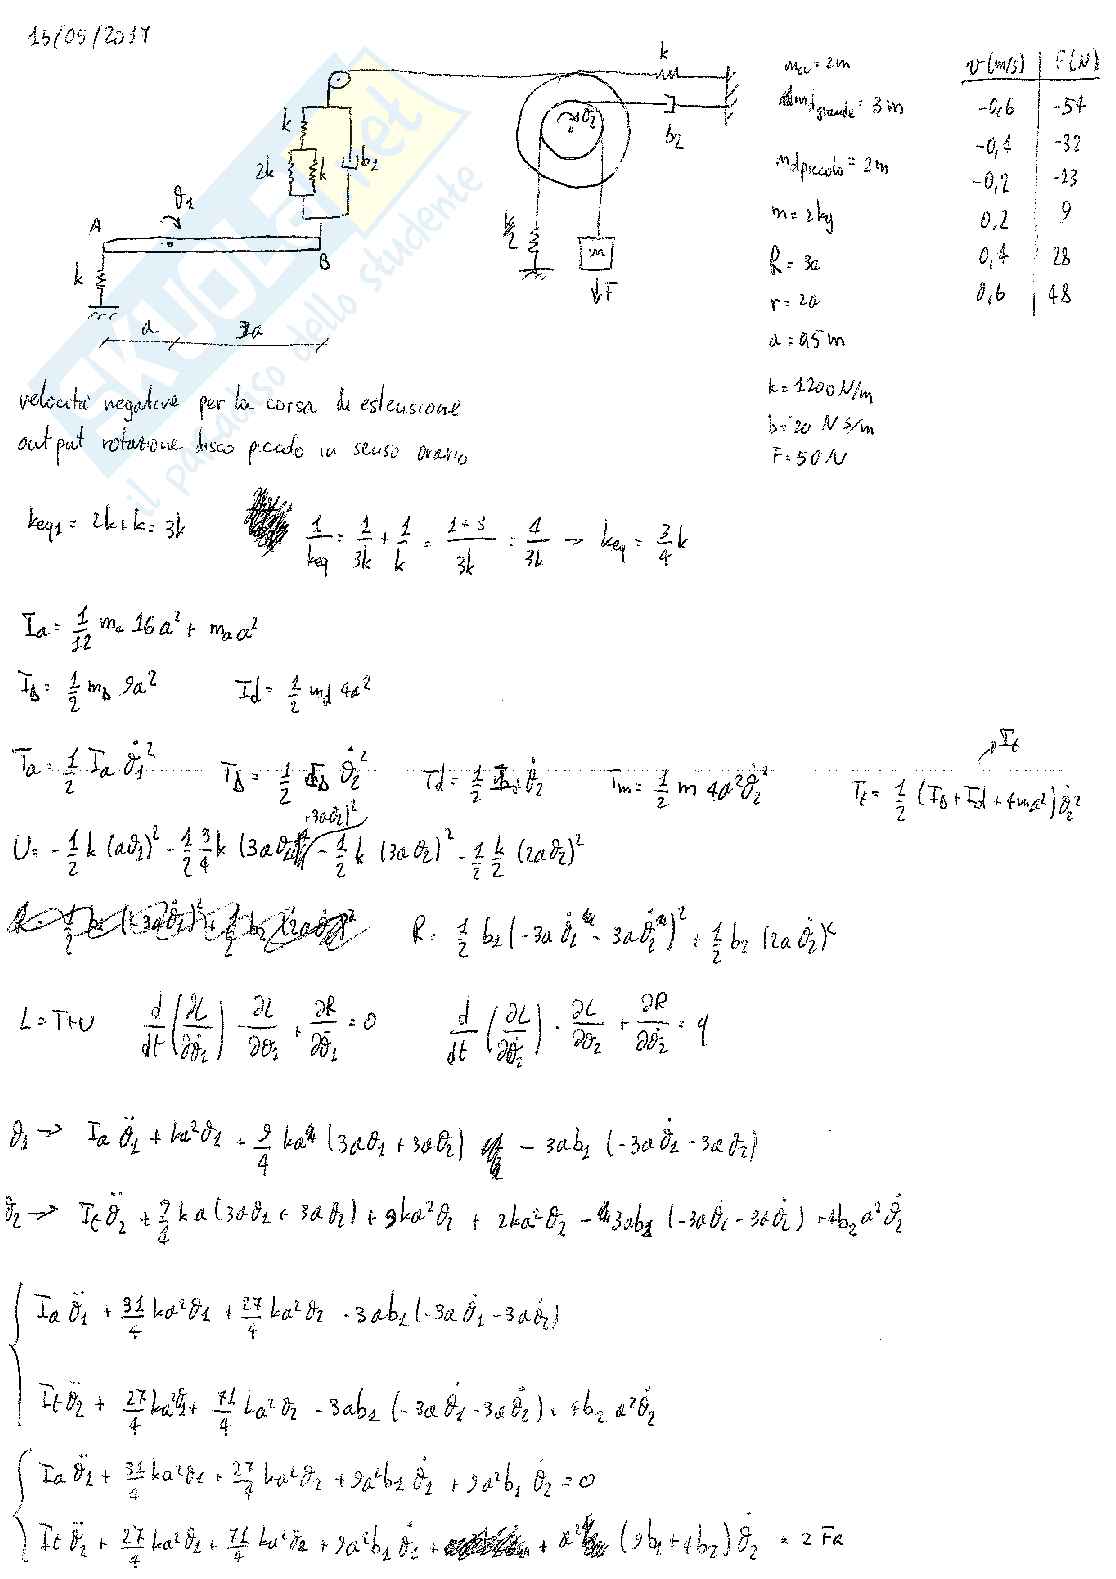 15/05/2017
k
k
2k
k
b1
ϑ2
b2
ϑ1
A
B
k
k/2
m
F
a
3a
ma = 2m
mdgrande = 3m
mdpiccolo = 2m
m = 2kg
R = 3a
r = 2a
a = 0,5 m
k = 1200 N/m
b = 20 N s/m
F = 50 N
v (m/s) | F (N)
-0,6 | -54
-0,4 | -32
-0,2 | -13
0,2 | 9
0,4 | 28
0,6 | 48
velocità negative per la corsa di estensione
output rotazione disco piccolo in senso orario
keq1 = 2k+k = 3k
1/keq = 1/3k + 1/k = 1+3/3k = 4/3k → keq = 3/4 k
Ia = 1/12 ma 16a² + ma a²
ID = 1/2 mD 9a² Id = 1/2 md 4a²
Ta = 1/2 Ia ϑ̇1² TD = 1/2 ID ϑ̇2² Td = 1/2 Id ϑ̇2 Tm = 1/2 m 4a² ϑ̇2² Tt = 1/2 (ID + Id + 4ma²) ϑ̇2²
It
U = -1/2 k (aϑ1)² - 1/2 3/4 k (3aϑ1 +3aϑ2)² - 1/2 k (3aϑ2)² - 1/2 k/2 (2aϑ2)²
R = 1/2 b1 (-3aϑ̇1 - 3aϑ̇2)² + 1/2 b2 (2aϑ̇2)²
L = T+U d/dt (∂L/∂ϑ̇1) - ∂L/∂ϑ1 + ∂R/∂ϑ̇1 = 0 d/dt (∂L/∂ϑ̇2) - ∂L/∂ϑ2 + ∂R/∂ϑ̇2 = q
ϑ1 → Ia ϑ̈1 + ka²ϑ1 + 9/4 ka (3aϑ1 + 3aϑ2) - 3ab1 (-3aϑ̇1 - 3aϑ̇2)
ϑ2 → It ϑ̈2 + 9/4 ka (3aϑ1 + 3aϑ2) + 9ka²ϑ2 + 2ka²ϑ2 - 3ab1 (-3aϑ̇1 - 3aϑ̇2) + 4b2 a² ϑ̇2
Ia ϑ̈1 + 31/4 ka²ϑ1 + 27/4 ka²ϑ2 - 3ab1 (-3aϑ̇1 - 3aϑ̇2)
It ϑ̈2 + 27/4 ka²ϑ1 + 71/4 ka²ϑ2 - 3ab1 (-3aϑ̇1 - 3aϑ̇2) + 4b2 a² ϑ̇2
Ia ϑ̈1 + 31/4 ka²ϑ1 + 27/4 ka²ϑ2 + 9a²b1 ϑ̇1 + 9a²b1 ϑ̇2 = 0
It ϑ̈2 + 27/4 ka²ϑ1 + 71/4 ka²ϑ2 + 9a²b1 ϑ̇1 + a² (9b1 + 4b2) ϑ̇2 = 2Fa
skuola.net
il paradiso dello studente